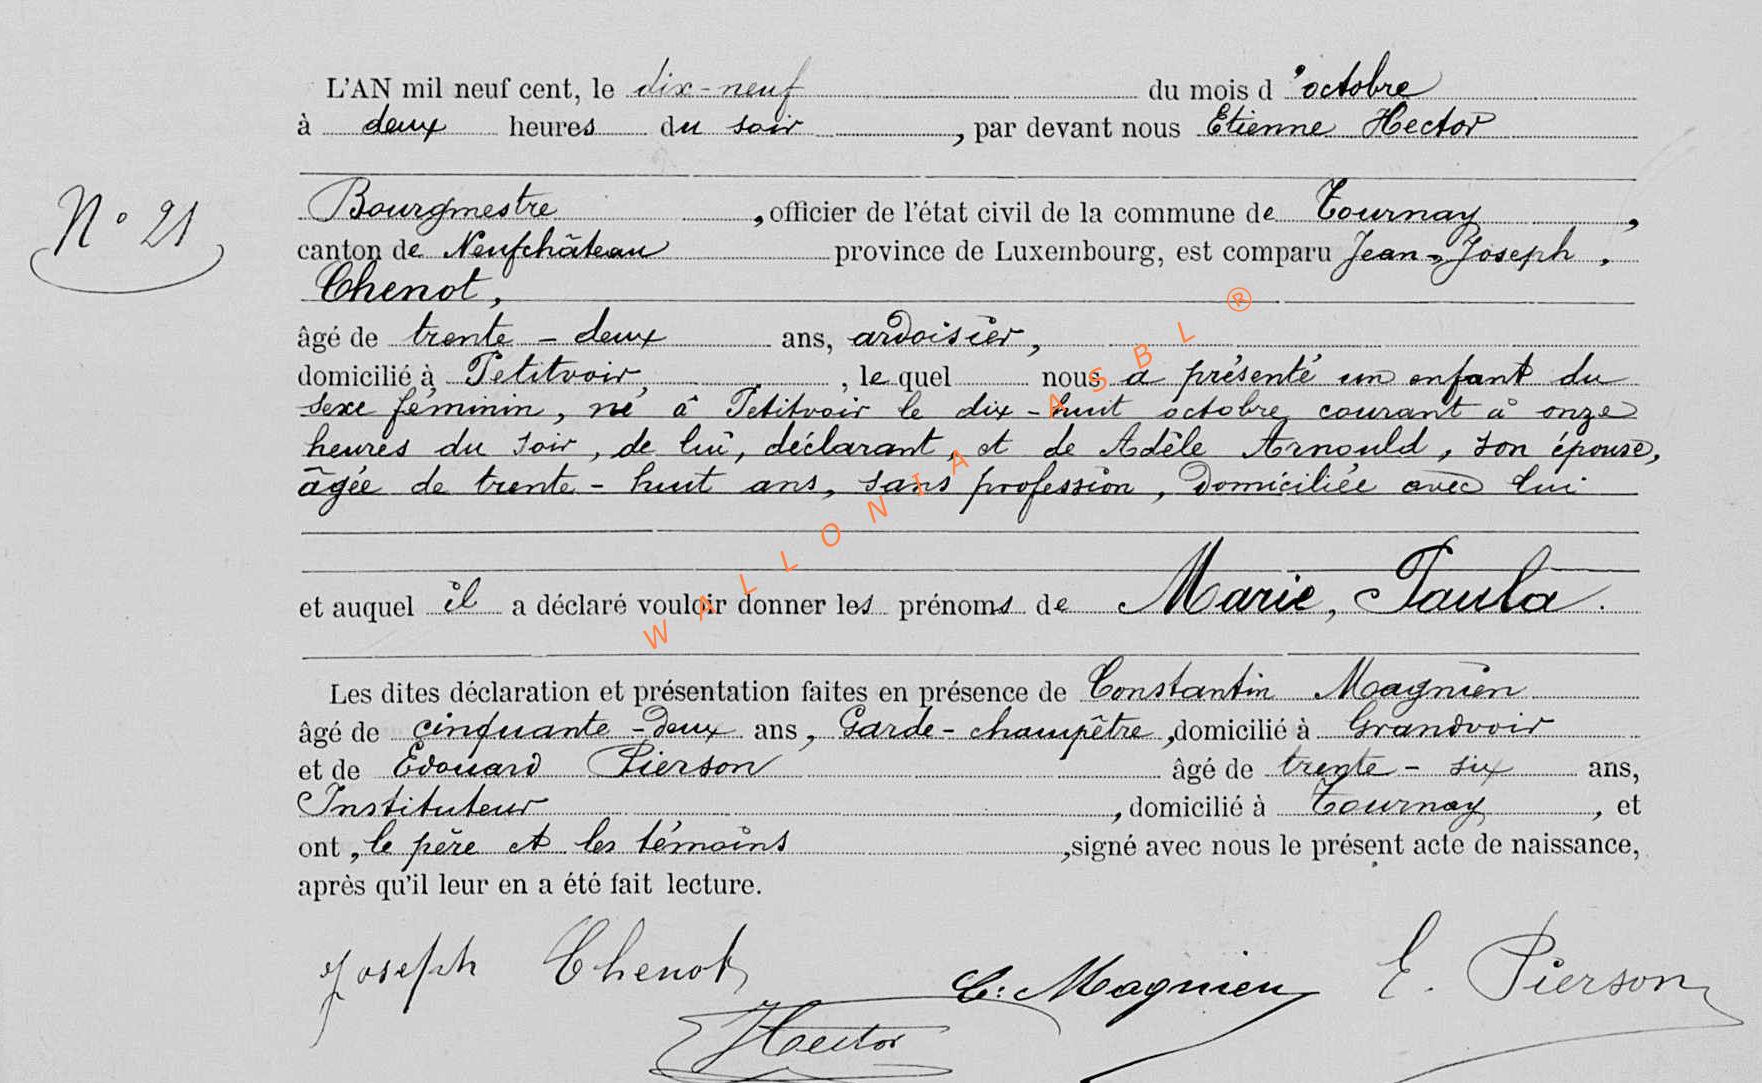 L'AN mil neuf cent, le dix-neuf du mois d'octobre
à deux heures du soir, par devant nous Etienne Hector
Bourgmestre, officier de l'état civil de la commune de Tournay,
N° 21
canton de Neufchâteau province de Luxembourg, est comparu Jean-Joseph,
Chenot,
âgé de trente-deux ans, ardoisier,
domicilié à Petitvoir, le quel nous a présenté un enfant du
sexe féminin, né à Petitvoir le dix-huit octobre courant à onze
heures du soir, de lui, déclarant, et de Adèle Arnould, son épouse,
âgée de trente-huit ans, sans profession, domiciliée avec lui
et auquel il a déclaré vouloir donner les prénoms de Marie, Paula.
Les dites déclaration et présentation faites en présence de Constantin Magnien
âgé de cinquante-deux ans, Garde-champêtre, domicilié à Grandvoir
et de Edouard Pierson âgé de trente-six ans,
Instituteur, domicilié à Tournay, et
ont, le père et les témoins, signé avec nous le présent acte de naissance,
après qu'il leur en a été fait lecture.
Joseph Chenot C. Magnien E. Pierson
Hector
WALLONIA ASBL ®